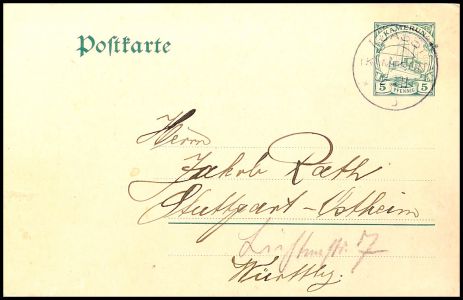 KAMERUN
Postkarte
5 PFENNIG 5
Herrn
Jakob Rath
Stuttgart-Ostheim
7
Württbg.